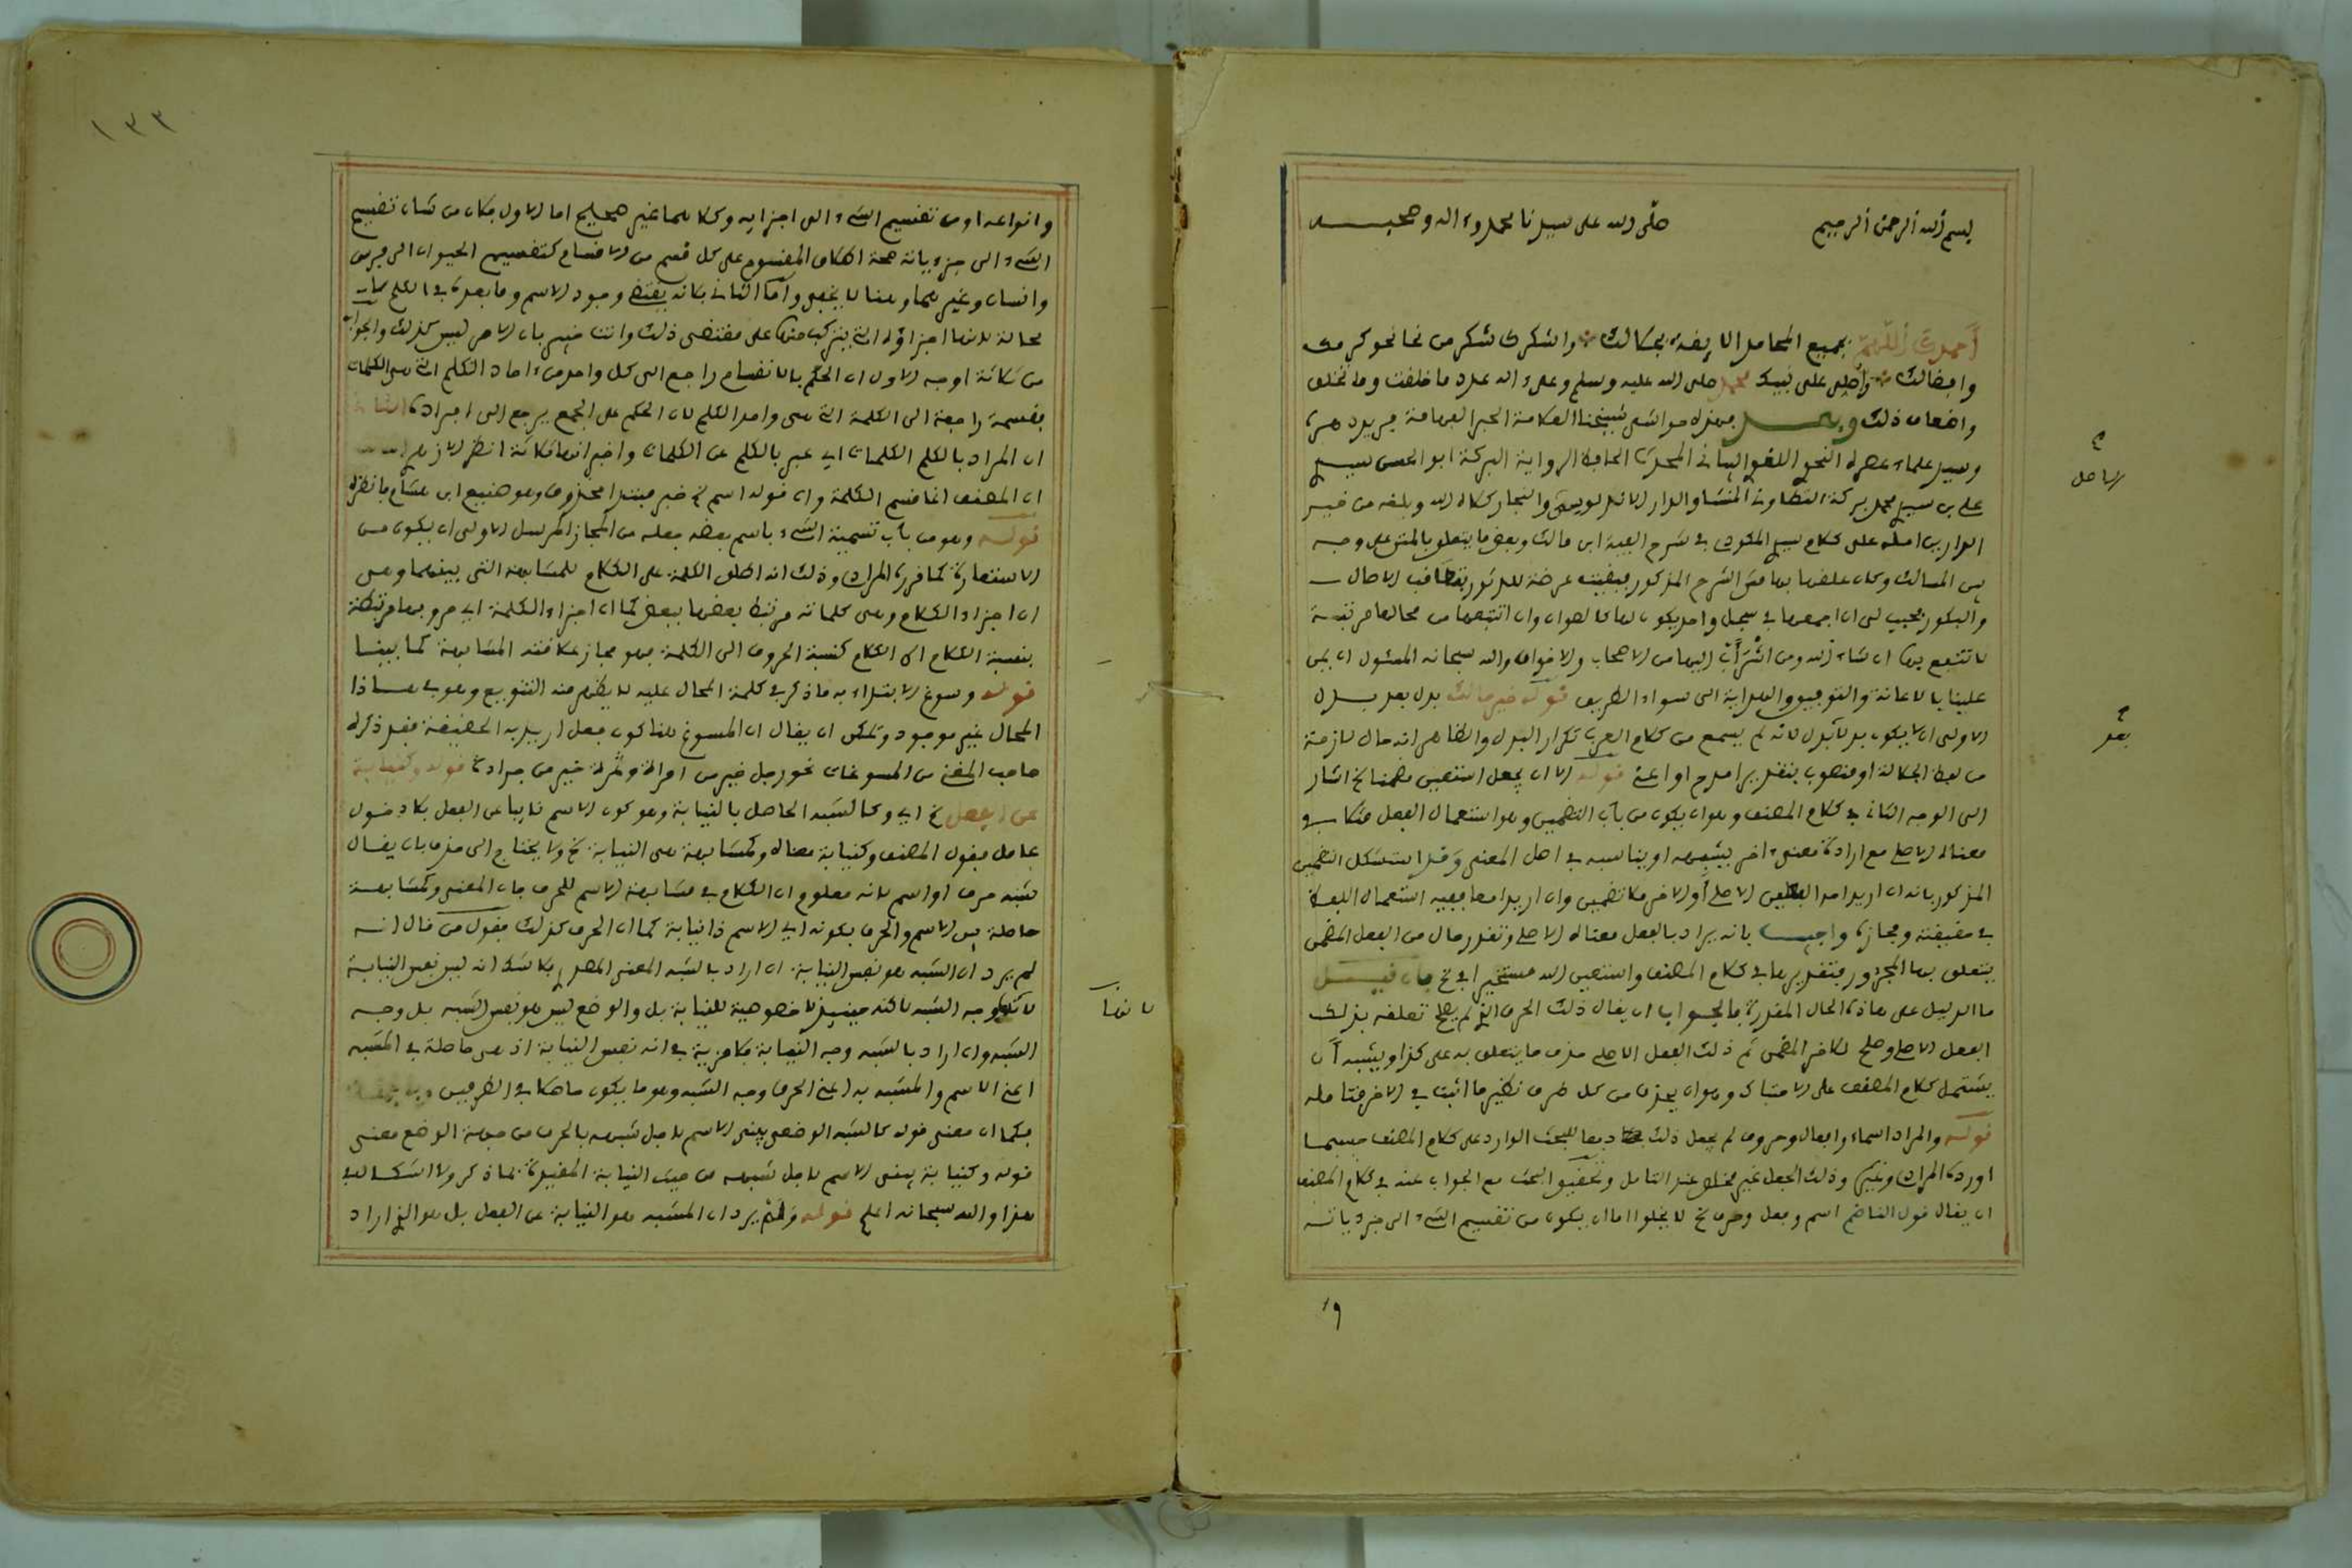 بسم الله الرحمن الرحيم صلى الله على سيدنا محمد وءاله وصحبه
أحمدك اللهم بجميع المحامد اللايقة بجلالك واشكرك شكر من نحا نحو كرمك
وافضالك واصلي على نبيك محمد صلى الله عليه وسلم وعلى ءاله عدد ما خلقت وما تخلق
واضعاف ذلك وبعد فهذه حواشي شيخنا العلامة الحبر الفهامة فريد دهره
وسيد علماء عصره النحوي اللغوي البياني المحدث الحافظ الرواية البركة ابو الحسن سيدي
علي بن سيدي محمد بركة التطاوني المنشا والدار الاندلسي والنجار كلاه الله وبلغه من خير
الدارين امله على كلام سيدي المكودي في شرح الفية ابن مالك وبعض ما يتعلق بالمتن على وجه
بين المسالك وكان علقها بهامش الشرح المذكور فبقيت عرضة للدثور بتعاقب الاصال
والبكور فحبب لي ان اجمعها في سجل واحد يكون لها كالصوان وان اثبتها من محالها مرتبة
لانتفع بها ان شاء الله ومن اشرأب اليها من الاصحاب والاخوان والله سبحانه المسئول ان يمن
علينا بالاعانة والتوفيق والهداية الى سواء الطريق قوله خير مالك بدل بعد بدل
الاولى ان لا يكون بدلا لانه لم يسمع من كلام العرب تكرار البدل والظاهر انه حال لازمة
من لفظ الجلالة او منصوب بتقدير امدح او اعني قوله الا ان يجعل استعين مضمنا الخ اشار
الى الوجه الثاني في كلام المصنف وهو ان يكون من باب التضمين وهو استعمال الفعل مثلا في
معناه الاصلي مع ارادة معنى ءاخر يشبهه او يناسبه في اصل المعنى وقد استشكل التضمين
المذكور بانه ان اريد احد المعنيين الاصلي أو الاخر فلا تضمين وان اريدا معا ففيه استعمال اللفظ
في حقيقته ومجازه واجيب بانه يراد بالفعل معناه الاصلي وتقدر حال من الفعل المضمن
يتعلق بها المجرور فتقديرها في كلام المصنف واستعين الله مستخيرا في الخ فان قيل
ما الدليل على هاذه الحال المقدرة فالجواب ان يقال ذلك الحرف الذي لم يصلح تعلقه بذلك
الفعل الاصلي وصلح للاخر المضمن ثم ذلك الفعل الاصلي حذف ما يتعلق به على كذا ويشبه أن
يشتمل كلام المصنف على الاحتباك وهو ان يحذف من كل طرف نظير ما اثبت في الاخر فتامله
قوله والمراد اسماء وافعال وحروف لم يجعل ذلك دفعا للبحث الوارد على كلام المصنف حسبما
اورده المرادي وغيره وذلك الجعل غير مخلص عند التامل وتحقيق البحث مع الجواب عنه في كلام المصنف
ان يقال قول الناظم اسم وفعل وحرف الخ لا يخلوا اما ان يكون من تقسيم الشيء الى جزءياته
الاصل
بعد
وا
١٣٣
وانواعه او من تقسيم الشيء الى اجزايه وكلاهما غير صحيح اما الاول فلان من شان تقسيم
الشيء الى جزءياته صحة اطلاق المقسوم على كل قسم من الاقسام كتقسيم الحيوان الى فرس
وانسان وغيرهما وهنا لا يخفى وأما الثاني فلانه يقتضي وجود الاسم وما بعده في الكلم
محالة لانها اجزاؤه التي يتركب منها على مقتضى ذلك وانت خبير بان الامر ليس كذلك والجواب
من ثلاثة اوجه الاول ان الحكم بالانقسام راجع الى كل واحد من ءاحاد الكلم التي هي الكلمات
فقسمة راجعة الى الكلمة التي هي واحد الكلم لان الحكم على الجمع يرجع الى افراده الثاني
ان المراد بالكلم الكلمات اي عبر بالكلم عن الكلمات واخبر انها ثلاثة انظر الازهري
ان المصنف انما قسم الكلمة وان قوله اسم الخ خبر مبتدا محذوف وهو صنيع ابن هشام فانظره
قوله وهو من باب تسمية الشيء باسم بعضه جعله من المجاز المرسل الاولى ان يكون من
الاستعارة كما قرره المرادي وذلك انه اطلق الكلمة على الكلام للمشابهة التي بينهما وهي
ان اجزاء الكلام وهي كلماته مرتبط بعضها ببعض كما ان اجزاء الكلمة اي حروفها مرتبطة
فنسبة الكلام الى الكلام كنسبة الحروف الى الكلمة فهو مجاز علاقته المشابهة كما بينا
قوله وسوغ الابتداء به ما ذكر في كلمة المحال عليه لا يظهر منه التنويع وهو في هاذا
المحال غير موجود ويمكن ان يقال ان المسوغ هنا كون فعل اريد به الحقيقة فقد ذكره
صاحب المغني من المسوغات نحو رجل خير من امراة وثمرة خير من جرادة قوله وكنيابة
عن الفعل الخ اي وكالشبه الحاصل بالنيابة وهو كون الاسم نايبا عن الفعل بلا دخول
عامل فقول المصنف وكنيابة معناه وكمشابهة هي النيابة الخ ولا يحتاج الى حذف بان يقال
شبه حرف او اسم لانه معلوم ان الكلام في مشابهة الاسم للحرف فان المعنى وكمشابهة
حاصلة بين الاسم والحرف بكونه اي الاسم ذا نيابة كما ان الحرف كذلك فقول من قال انه
لم يرد ان الشبه هو نفس النيابة ان اراد بالشبه المعنى المصدري فلا شك انه ليس نفس النيابة
وجه الشبه لاكنه حينيذ لا خصوصية للنيابة بل والوضع ليس هو نفس الشبه بل وجه
الشبه وان اراد بالشبه وجه النيابة فلا مزية في انه نفس النيابة اذ هي حاصلة في المشبه
اعني الاسم والمشبه به اعني الحرف وجه الشبه وهو ما يكون حاصلا في الطرفين
فكما ان معنى قوله كالشبه الوضعي يبنى الاسم لاجل شبهه بالحرف من جهة الوضع معنى
قوله وكنيابة يبنى الاسم لاجل شبهه من حيث النيابة المقيدة بما ذكر ولا اشكال في
هذا والله سبحانه اعلم قوله ولم يرد ان المشبه هو النيابة عن الفعل بل هو الذي اراد
لانها